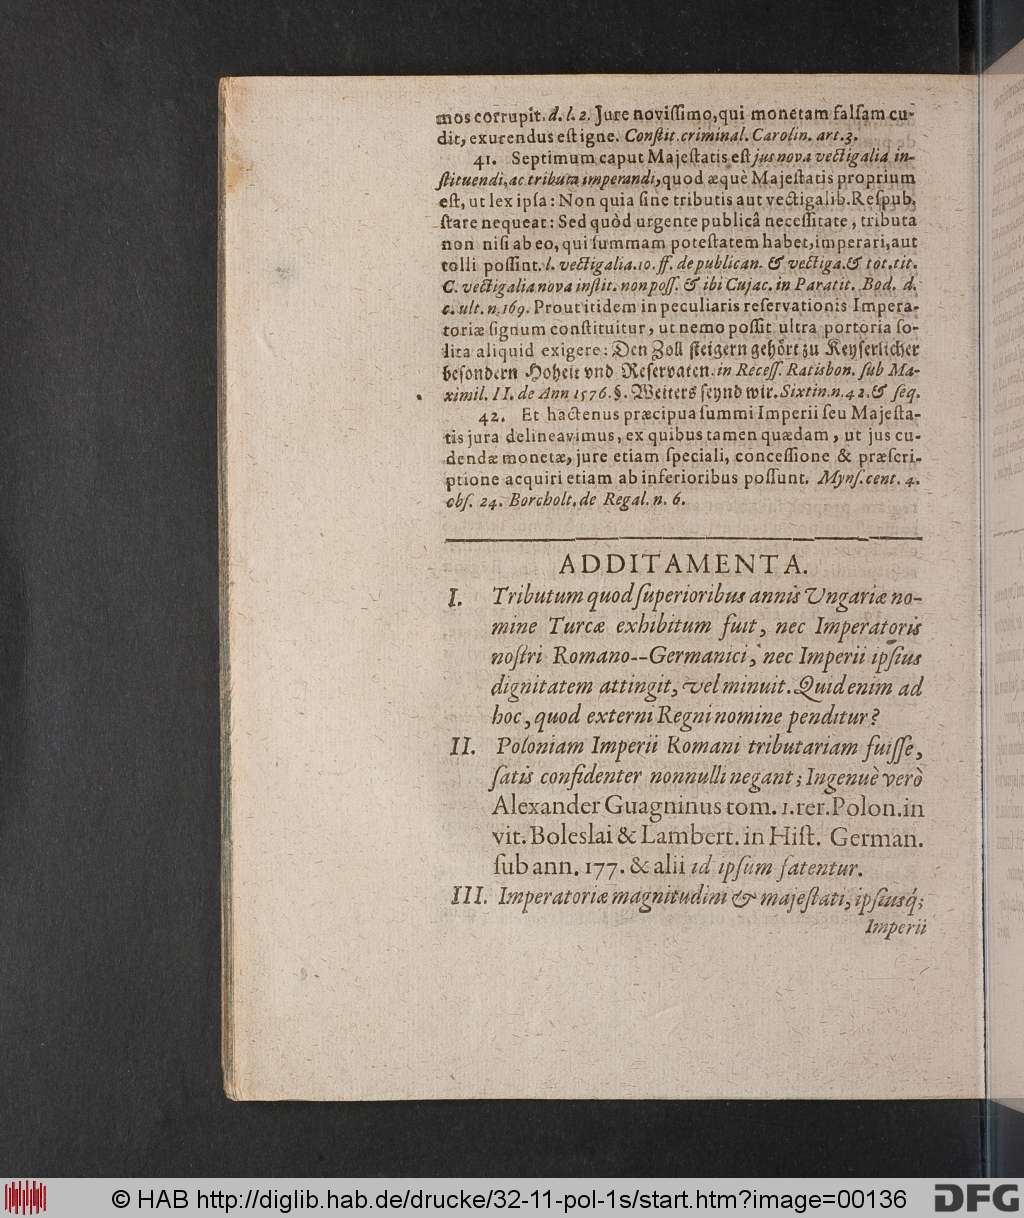 mos corrupit. d. l. 2. Jure novissimo, qui monetam falsam cu-
dit, exurendus est igne. Constit. criminal. Carolin. art. 3.
41. Septimum caput Majestatis est jus nova vectigalia in-
stituendi, ac tributa imperandi, quod æquè Majestatis proprium
est, ut lex ipsa: Non quia sine tributis aut vectigalib. Respub.
stare nequeat: Sed quòd urgente publicâ necessitate, tributa
non nisi ab eo, qui summam potestatem habet, imperari, aut
tolli possint. l. vectigalia. 10. ff. de publican. & vectiga. & tot. tit.
C. vectigalia nova instit. non poss. & ibi Cujac. in Paratit. Bod. d.
c. ult. n. 169. Prout itidem in peculiaris reservationis Impera-
toriæ signum constituitur, ut nemo possit ultra portoria so-
lita aliquid exigere: Den Zoll steigern gehört zu Keyserlicher
besondern Hoheit vnd Reservaten. in Recess. Ratisbon. sub Ma-
ximil. II. de Ann 1576. §. Weiters seynd wir. Sixtin. n. 42. & seq.
42. Et hactenus præcipua summi Imperii seu Majesta-
tis jura delineavimus, ex quibus tamen quædam, ut jus cu-
dendæ monetæ, jure etiam speciali, concessione & præscri-
ptione acquiri etiam ab inferioribus possunt. Myns. cent. 4.
obs. 24. Borcholt. de Regal. n. 6.
ADDITAMENTA.
I. Tributum quod superioribus annis Ungariæ no-
mine Turcæ exhibitum fuit, nec Imperatoris
nostri Romano--Germanici, nec Imperii ipsius
dignitatem attingit, vel minuit. Quid enim ad
hoc, quod externi Regni nomine penditur?
II. Poloniam Imperii Romani tributariam fuisse,
satis confidenter nonnulli negant; Ingenuè verò
Alexander Guagninus tom. 1. rer. Polon. in
vit. Boleslai & Lambert. in Hist. German.
sub ann. 177. & alii id ipsum fatentur.
III. Imperatoriæ magnitudini & majestati, ipsiusq́;
Imperii
© HAB http://diglib.hab.de/drucke/32-11-pol-1s/start.htm?image=00136
DFG